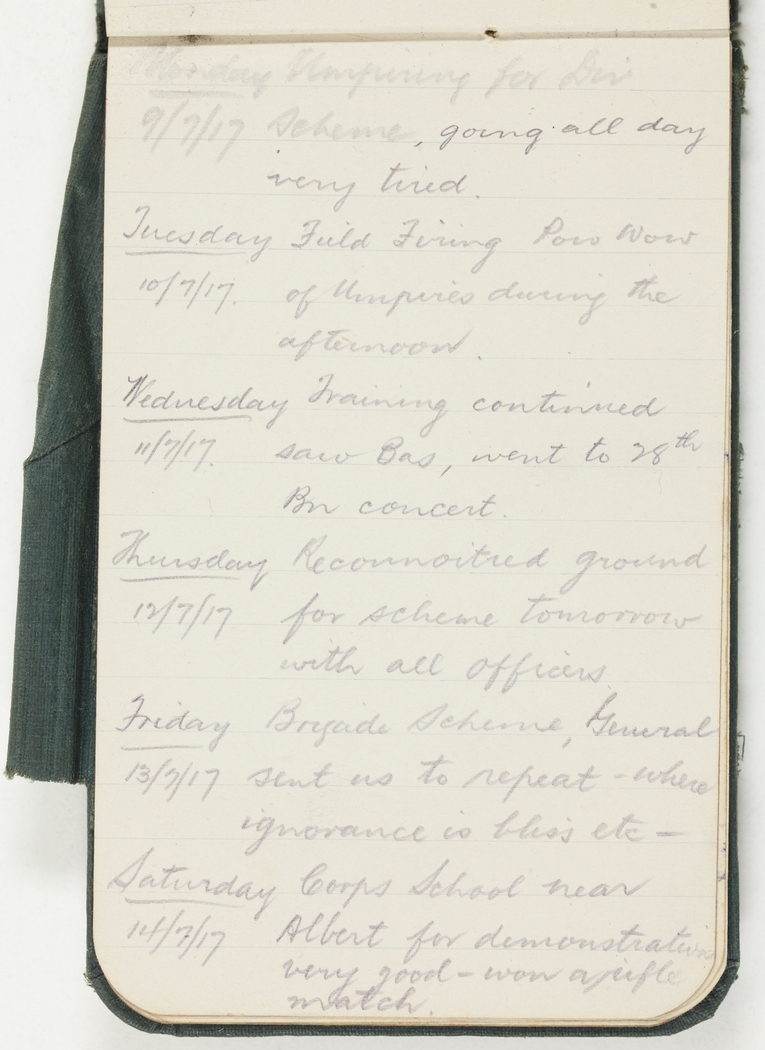 Monday Umpiring for Div
9/7/17 Scheme, going all day
very tired.
Tuesday Field Firing Pow Wow
10/7/17. of Umpires during the
afternoon.
Wednesday Training continued
11/7/17. saw Bas, went to 28th
Bn concert.
Thursday Reconnoitred ground
12/7/17 for scheme tomorrow
with all officers
Friday Brigade Scheme, General
13/7/17 sent us to repeat - where
ignorance is bliss etc -
Saturday Corps School near
14/7/17 Albert for demonstration
very good - won a rifle
match.